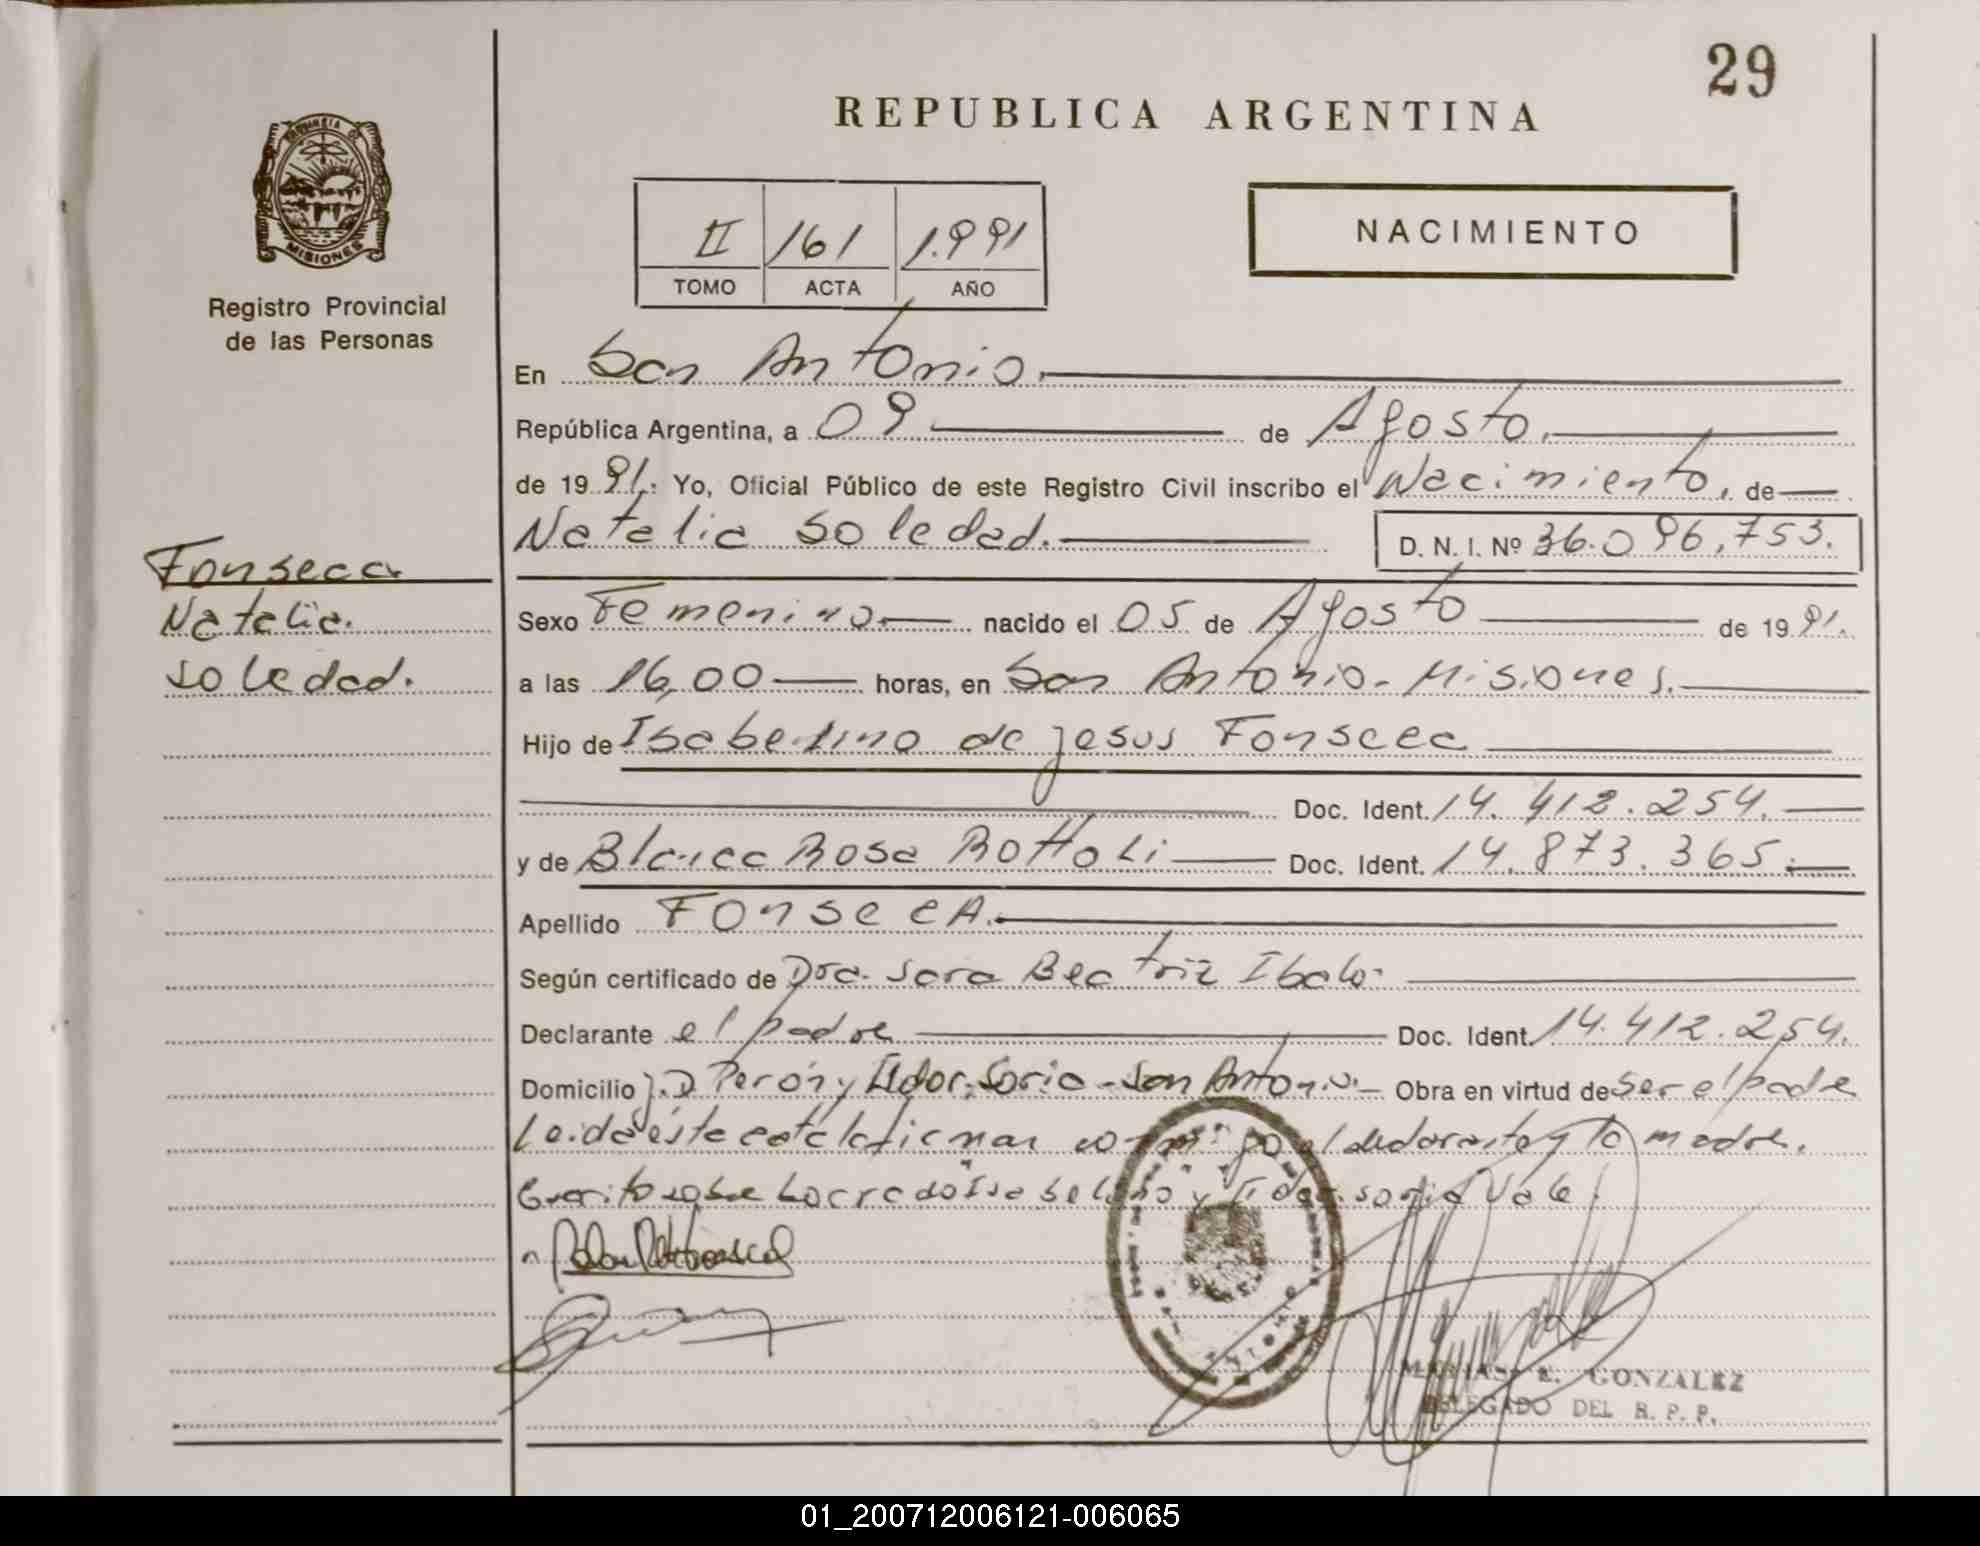 29
REPUBLICA ARGENTINA
PROVINCIA DE
MISIONES
Registro Provincial
de las Personas
II 161 1.991
TOMO ACTA AÑO
NACIMIENTO
En San Antonio.
República Argentina, a 09 de Agosto.
de 1991. Yo, Oficial Público de este Registro Civil inscribo el Nacimiento, de
Natalia Soledad. D. N. I. Nº 36.096,753.
Fonseca
Natalia.
Soledad.
Sexo Femenino nacido el 05 de Agosto de 1991.
a las 16,00 horas, en San Antonio - Misiones.
Hijo de Isabelino de Jesus Fonseca
Doc. Ident. 14.412.254.
y de Blanca Rosa Bottoli Doc. Ident. 14.873.365.
Apellido FONSECA.
Según certificado de Dra. Sara Beatriz
Declarante el padre Doc. Ident. 14.412.254.
Domicilio J.D Perón y Soria - San Antonio. Obra en virtud de Ser el padre
Leida ésta acta la firman el declarante y la madre.
sobre Isabelino y Soria Vale.
E. GONZALEZ
DELEGADO DEL R. P. P.
01_200712006121-006065